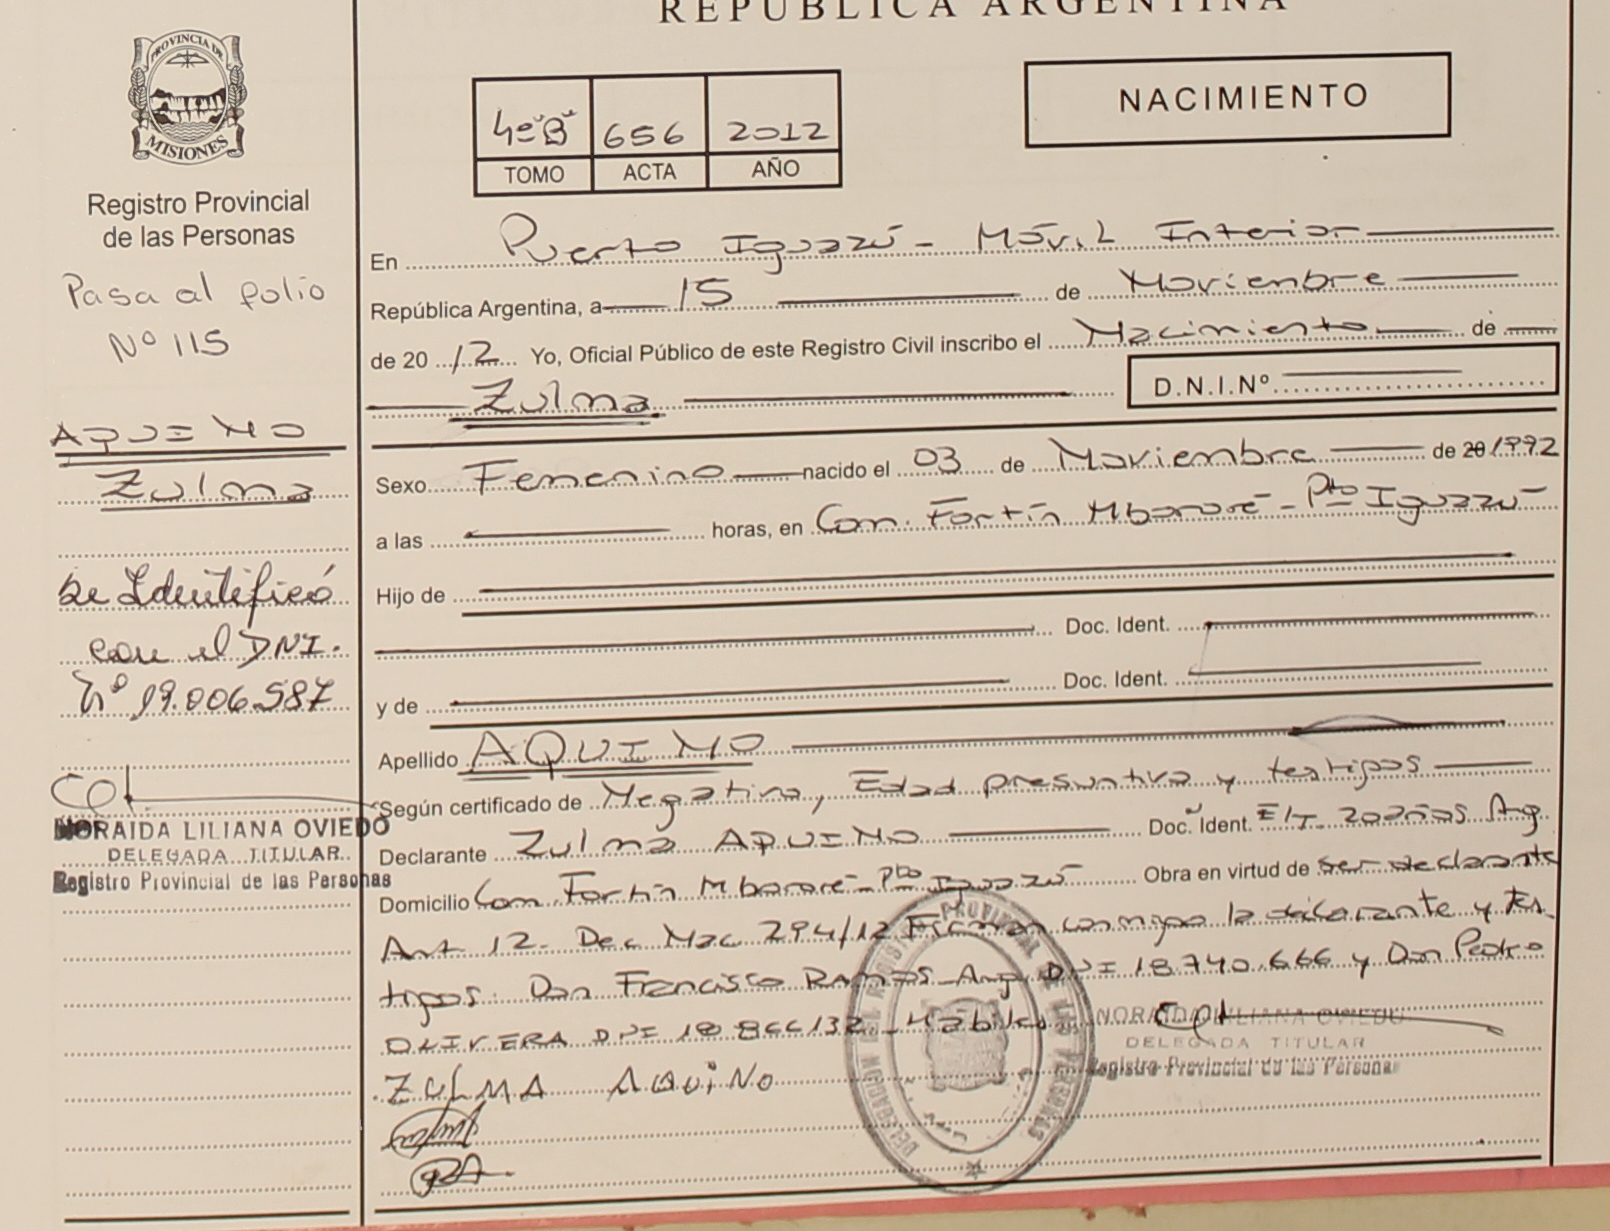 REPUBLICA ARGENTINA
PROVINCIA DE
MISIONES
Registro Provincial
de las Personas
Pasa al folio
Nº 115
AQUINO
Zulma
Se Identificó
con el DNI.
Nº 19.006.587
NORAIDA LILIANA OVIEDO
DELEGADA TITULAR
Registro Provincial de las Personas
4º"B" 656 2012
TOMO ACTA AÑO
NACIMIENTO
En Puerto Iguazú - Móvil Interior
República Argentina, a 15 de Noviembre
de 20 12 Yo, Oficial Público de este Registro Civil inscribo el Nacimiento de
Zulma D.N.I.Nº
Sexo Femenino nacido el 03 de Noviembre de 20 1992
a las horas, en Com. Fortín Mbororé - Pto Iguazú
Hijo de
Doc. Ident.
y de Doc. Ident.
Apellido AQUINO
Según certificado de Negativa, Edad presuntiva y testigos
Declarante Zulma AQUINO Doc. Ident. E/T. 20 años Arg
Domicilio Com. Fortín Mbororé - Pto Iguazú Obra en virtud de ser declarante
Art 12. Dec Nac 294/12 Firman conmigo la declarante y tes-
tigos. Don Francisco RAMOS - Arg DNI 18.740.666 y Don Pedro
OLIVERA DNI 18 866132 - Hábiles
NORAIDA LILIANA OVIEDO
DELEGADA TITULAR
Registro Provincial de las Personas
ZULMA AQUINO
DELEGACION DEL REGISTRO PROVINCIAL DE LAS PERSONAS